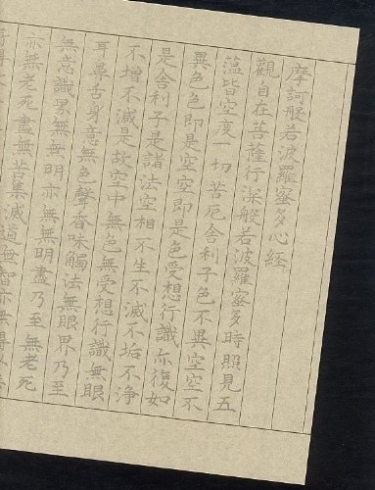 摩訶般若波羅蜜多心経
觀自在菩薩行深般若波羅蜜多時照見五
蘊皆空度一切苦厄舍利子色不異空空不
異色色即是空空即是色受想行識亦復如
是舍利子是諸法空相不生不滅不垢不浄
不増不減是故空中無色無受想行識無眼
耳鼻舌身意無色聲香味觸法無眼界乃至
無意識界無無明亦無無明盡乃至無老死
亦無老死盡無苦集滅道無智亦無得以無